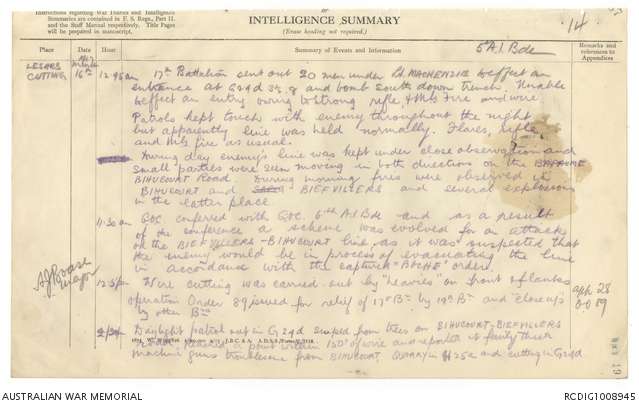 Instructions regarding War Diaries and Intelligence
Summaries are contained in F. S. Regs., Part II.
and the Staff Manual respectively. Title Pages
will be prepared in manuscript.
INTELLIGENCE SUMMARY
(Erase heading not required.)
14
5th A.I. Bde
Place Date Hour Summary of Events and Information Remarks and references to Appendices
LESARS CUTTING 16th 17th Battalion sent out 20 men under Lt. MACKENZIE to effect an
entrance at G29d and bomb South down trench. Unable
to effect an entry owing to strong rifle, & M.G. Fire and wire
Patrols kept touch with enemy throughout the night
but apparently line was held normally. Flares, rifle,
and M.G. fire as usual.
During day enemy's line was kept under close observation and
small parties were seen moving in both directions on the
BIHUCOURT Road. During morning fires were observed in
BIHUCOURT and BIEFVILLERS and several explosions
in the latter place
11.30 am GOC conferred with G.O.C. 6th A.I Bde and as a result
of the conference a scheme was evolved for an attack
on the BIEFVILLERS-BIHUCOURT line as it was suspected that
the enemy would be in process of evacuating the line
in accordance with the captured "BOCHE" orders.
Wire cutting was carried out by "heavies" on front of
operation Order 89 issued for relief of 17th Bn by 19th Bn and
by other Bns
Daylight patrol out in G29d from trees on BIHUCOURT-BIEFVILLERS
a point within 150x of wire and reported it fairly thick
machine guns troublesome from BIHUCOURT, QUARRY in H25c and cutting in G29d
Major
28
O.O 89
AUSTRALIAN WAR MEMORIAL
RCDIG1008945